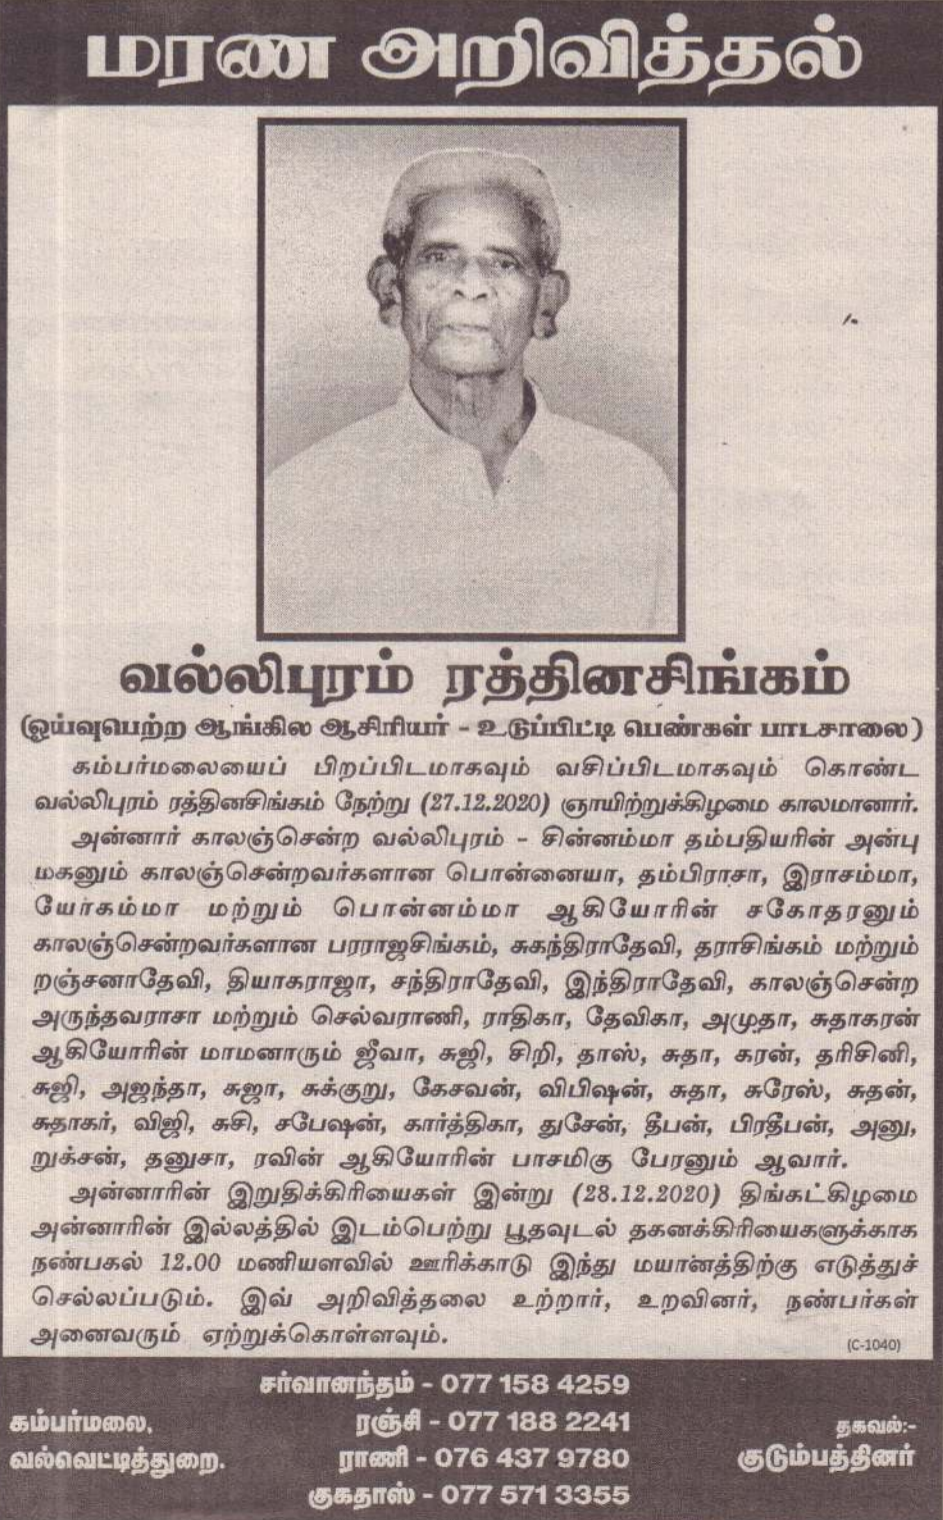 மரண அறிவித்தல்
வல்லிபுரம் ரத்தினசிங்கம்
(ஓய்வுபெற்ற ஆங்கில ஆசிரியர் - உடுப்பிட்டி பெண்கள் பாடசாலை)
கம்பர்மலையைப் பிறப்பிடமாகவும் வசிப்பிடமாகவும் கொண்ட
வல்லிபுரம் ரத்தினசிங்கம் நேற்று (27.12.2020) ஞாயிற்றுக்கிழமை காலமானார்.
அன்னார் காலஞ்சென்ற வல்லிபுரம் - சின்னம்மா தம்பதியரின் அன்பு
மகனும் காலஞ்சென்றவர்களான பொன்னையா, தம்பிராசா, இராசம்மா,
யேர்கம்மா மற்றும் பொன்னம்மா ஆகியோரின் சகோதரனும்
காலஞ்சென்றவர்களான பரராஜசிங்கம், சுகந்திராதேவி, தராசிங்கம் மற்றும்
றஞ்சனாதேவி, தியாகராஜா, சந்திராதேவி, இந்திராதேவி, காலஞ்சென்ற
அருந்தவராசா மற்றும் செல்வராணி, ராதிகா, தேவிகா, அமுதா, சுதாகரன்
ஆகியோரின் மாமனாரும் ஜீவா, சுஜி, சிறி, தாஸ், சுதா, கரன், தரிசினி,
சுஜி, அஜந்தா, சுஜா, சுக்குறு, கேசவன், விபிஷன், சுதா, சுரேஸ், சுதன்,
சுதாகர், விஜி, சுசி, சபேஷன், கார்த்திகா, துசேன், தீபன், பிரதீபன், அனு,
றுக்சன், தனுசா, ரவின் ஆகியோரின் பாசமிகு பேரனும் ஆவார்.
அன்னாரின் இறுதிக்கிரியைகள் இன்று (28.12.2020) திங்கட்கிழமை
அன்னாரின் இல்லத்தில் இடம்பெற்று பூதவுடல் தகனக்கிரியைகளுக்காக
நண்பகல் 12.00 மணியளவில் ஊரிக்காடு இந்து மயானத்திற்கு எடுத்துச்
செல்லப்படும். இவ் அறிவித்தலை உற்றார், உறவினர், நண்பர்கள்
அனைவரும் ஏற்றுக்கொள்ளவும்.
(C-1040)
சர்வானந்தம் - 077 158 4259
கம்பர்மலை, ரஞ்சி - 077 188 2241 தகவல்:-
வல்வெட்டித்துறை. ராணி - 076 437 9780 குடும்பத்தினர்
குகதாஸ் - 077 571 3355